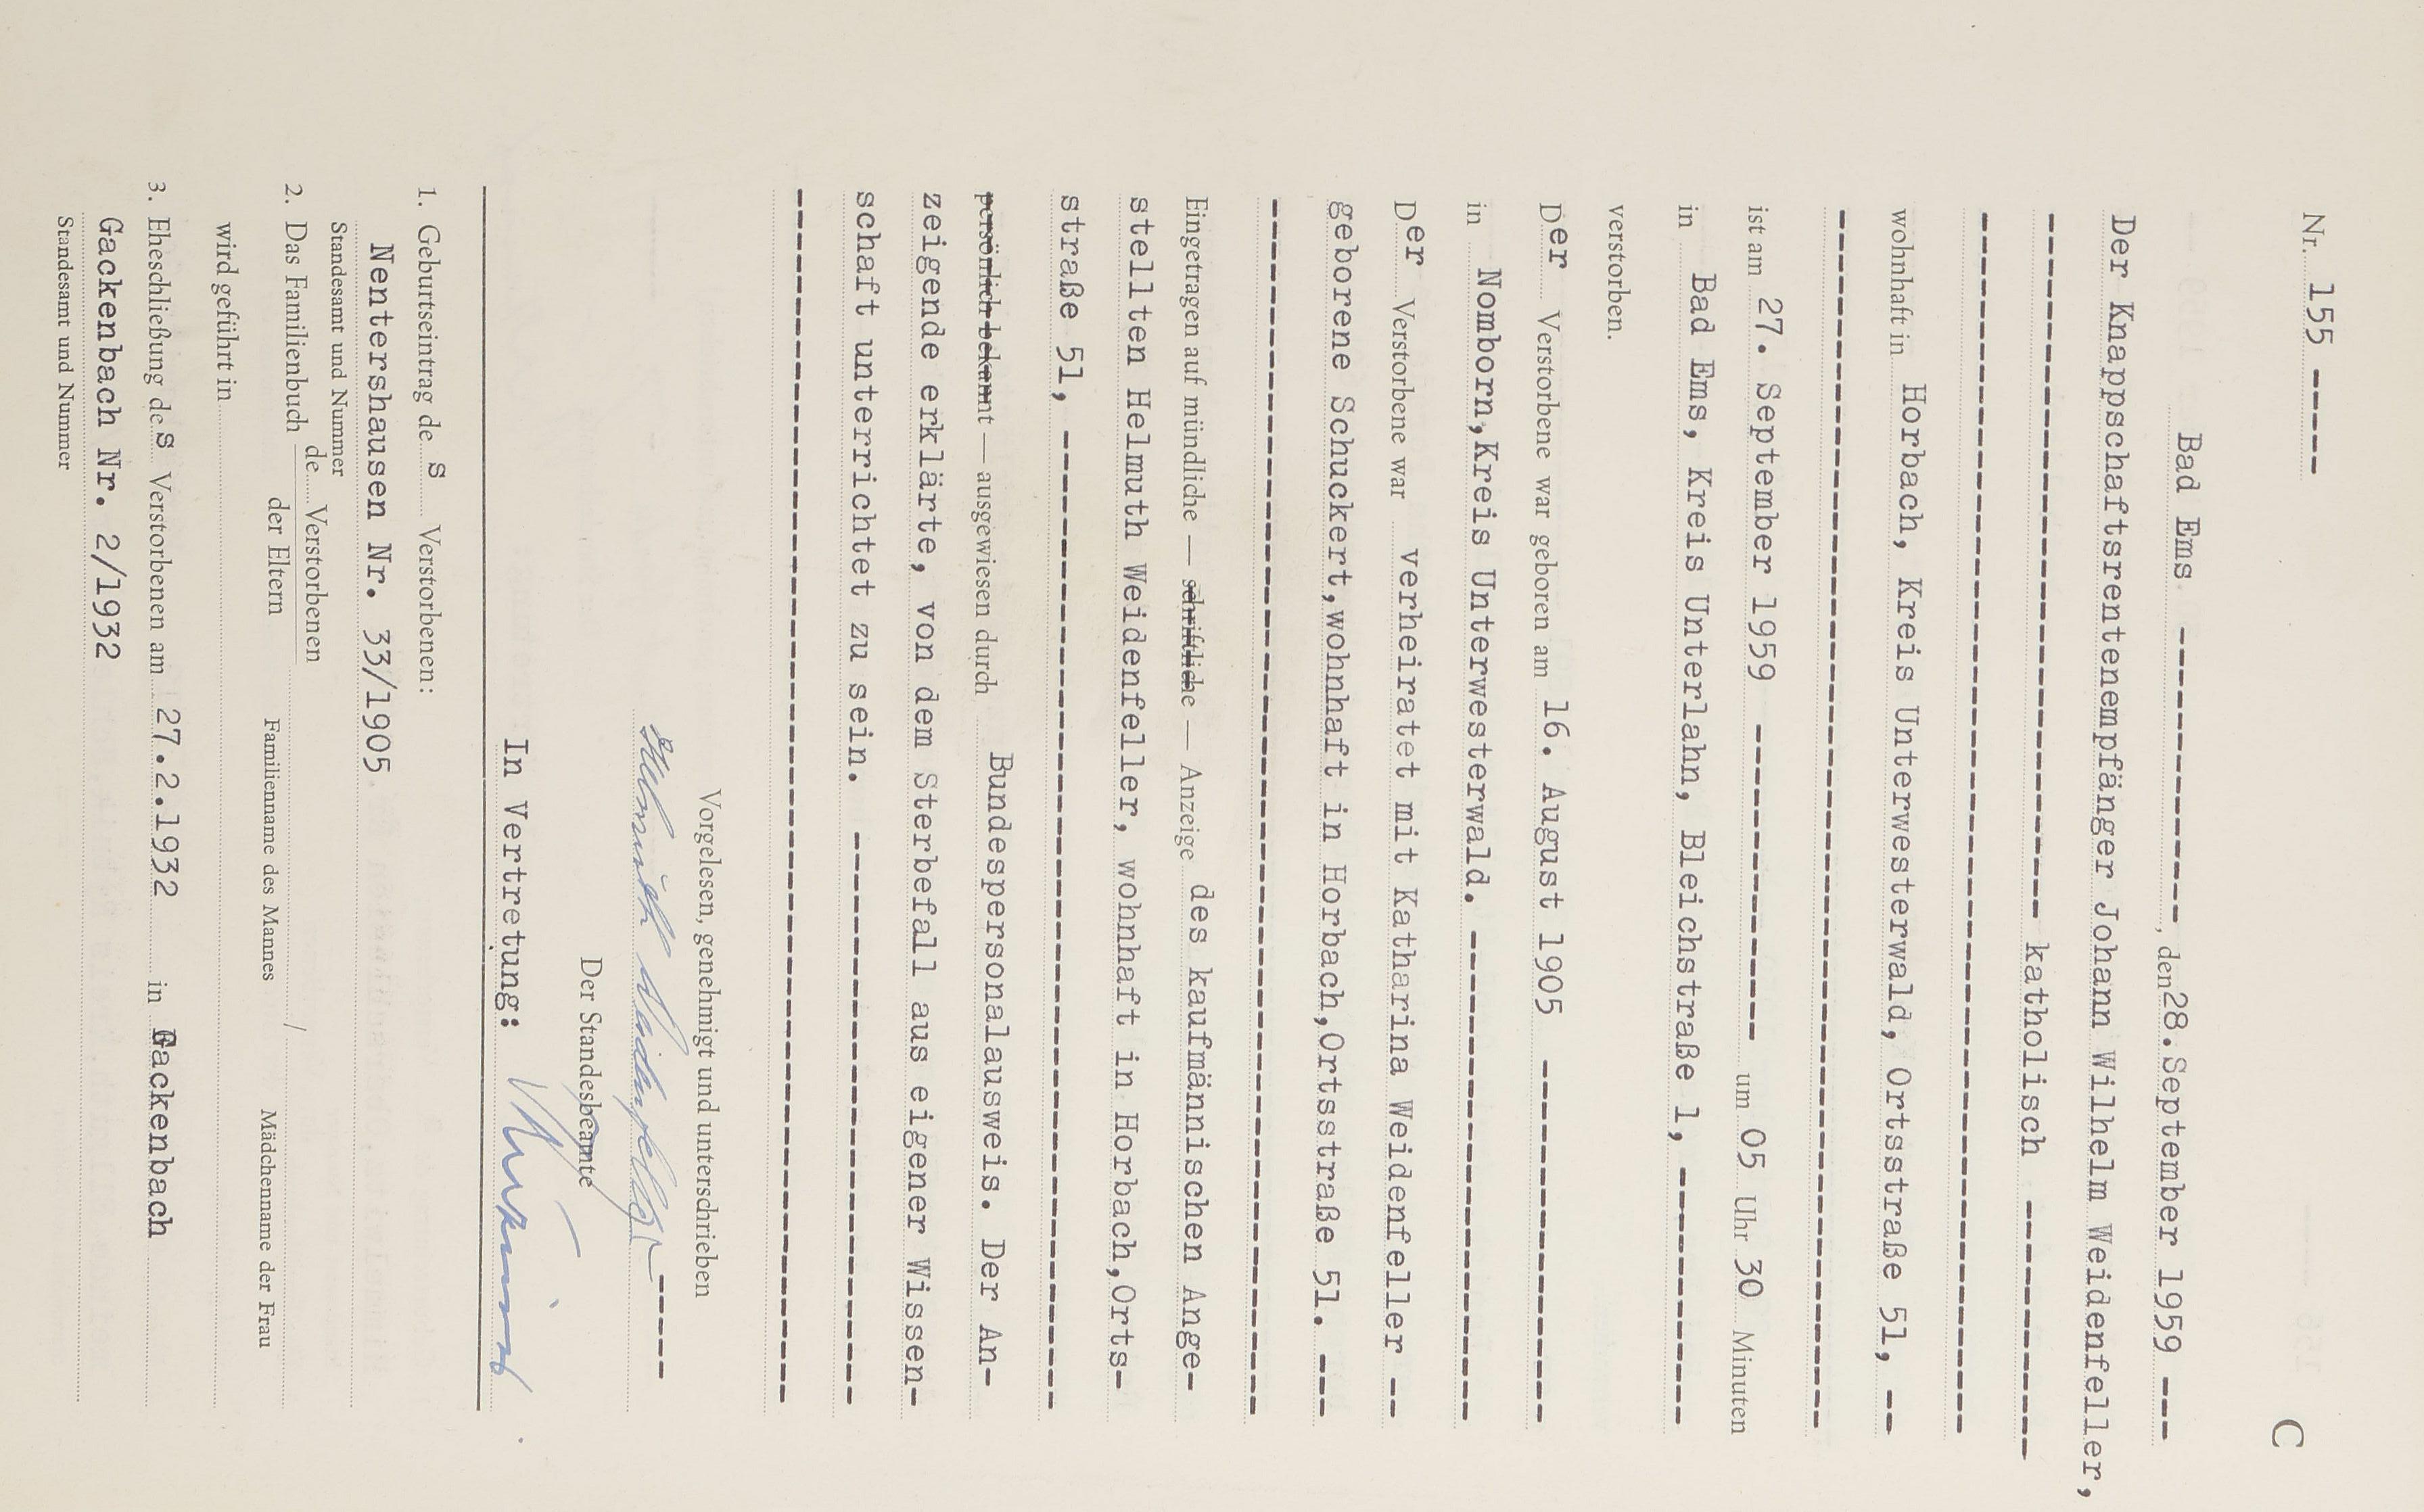 C
Nr. 155 -----
Bad Ems --------------, den 28.September 1959 ---
Der Knappschaftsrentenempfänger Johann Wilhelm Weidenfeller,
---------------------------------- katholisch ------------
----------------------------------------------------------
wohnhaft in Horbach, Kreis Unterwesterwald, Ortsstraße 51, --
----------------------------------------------------------
ist am 27. September 1959 --------------- um 05 Uhr 30 Minuten
in Bad Ems, Kreis Unterlahn, Bleichstraße 1, ------------
verstorben.
Der Verstorbene war geboren am 16. August 1905 -----------------
in Nomborn,Kreis Unterwesterwald. -----------------------
Der Verstorbene war verheiratet mit Katharina Weidenfeller --
geborene Schuckert,wohnhaft in Horbach,Ortsstraße 51. ---
----------------------------------------------------------
Eingetragen auf mündliche — schriftliche — Anzeige des kaufmännischen Ange-
stellten Helmuth Weidenfeller, wohnhaft in Horbach,Orts-
straße 51, -----------------------------------------------
persönlich bekannt — ausgewiesen durch Bundespersonalausweis. Der An-
zeigende erklärte, von dem Sterbefall aus eigener Wissen-
schaft unterrichtet zu sein. ---------------------------
----------------------------------------------------------
Vorgelesen, genehmigt und unterschrieben
Helmuth Weidenfeller -----
Der Standesbeamte
In Vertretung:
1. Geburtseintrag des Verstorbenen:
Nentershausen Nr. 33/1905
Standesamt und Nummer
2. Das Familienbuch de Verstorbenen / der Eltern /
Familienname des Mannes Mädchenname der Frau
wird geführt in
3. Eheschließung des Verstorbenen am 27.2.1932 in Gackenbach
Gackenbach Nr. 2/1932
Standesamt und Nummer